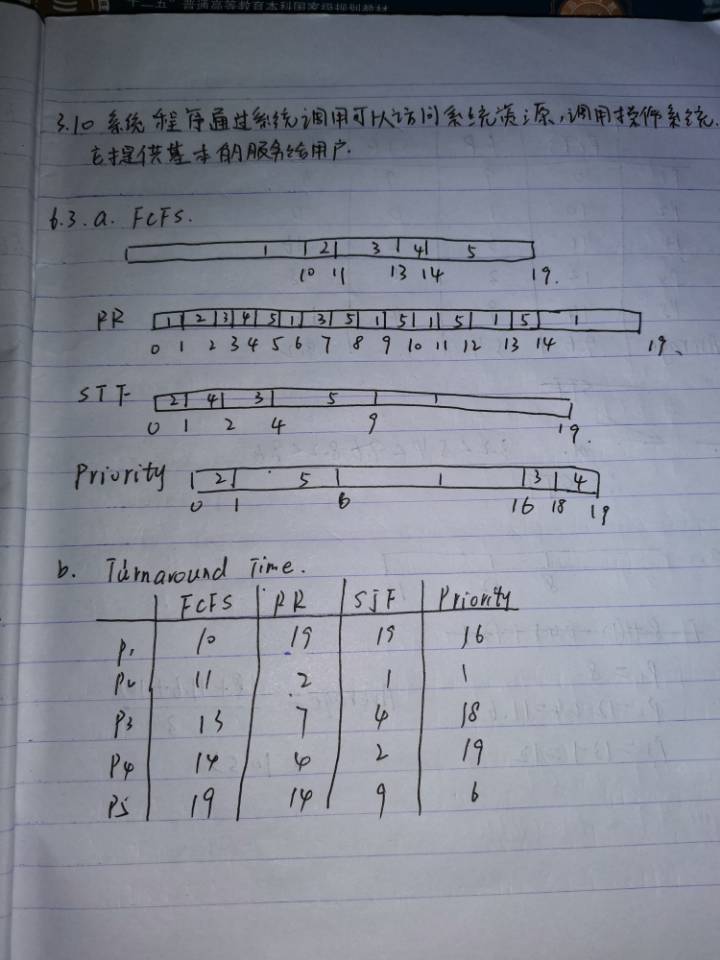 十二五"普通高等教育本科国家级规划教材
3.10 系统程序通过系统调用可以访问系统资源,调用操作系统.
它提供基本的服务给用户.
6.3. a. FCFS.
1 2 3 4 5
10 11 13 14 19.
RR 1 2 3 4 5 1 3 5 1 5 1 5 1 5 1
0 1 2 3 4 5 6 7 8 9 10 11 12 13 14 19、
SJF 2 4 3 5 1
0 1 2 4 9 19.
Priority 2 5 1 3 4
0 1 6 16 18 19
b. Turnaround Time.
FCFS RR SJF Priority
P1 10 19 19 16
P2 11 2 1 1
P3 13 7 4 18
P4 14 4 2 19
P5 19 14 9 6